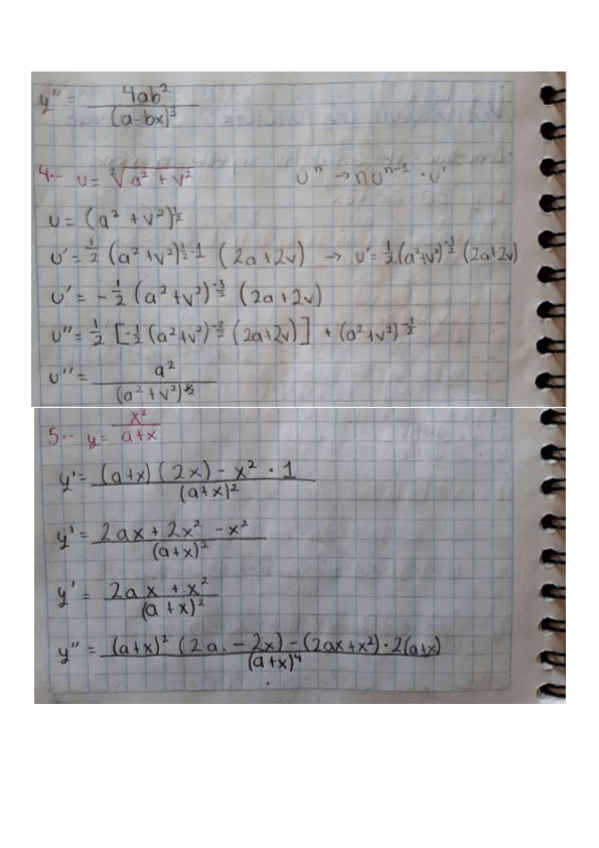 y'' = 4ab² / (a-bx)³
4.- u = ²√(a² + v²) uⁿ → nuⁿ⁻¹ · u'
u = (a² + v²)^½
u' = ½ (a² + v²)^(½-1) (2a + 2v) → u' = ½ (a² + v²)^(-½) (2a + 2v)
u' = -½ (a² + v²)^(-3/2) (2a + 2v)
u'' = ½ [-½ (a² + v²)^(-3/2) (2a + 2v)] + (a² + v²)^(-½)
u'' = a² / (a² + v²)^(3/2)
5.- y = x² / a+x
y' = (a+x) (2x) - x² · 1 / (a+x)²
y' = 2ax + 2x² - x² / (a+x)²
y' = 2ax + x² / (a+x)²
y'' = (a+x)² (2a - 2x) - (2ax + x²) · 2(a+x) / (a+x)⁴